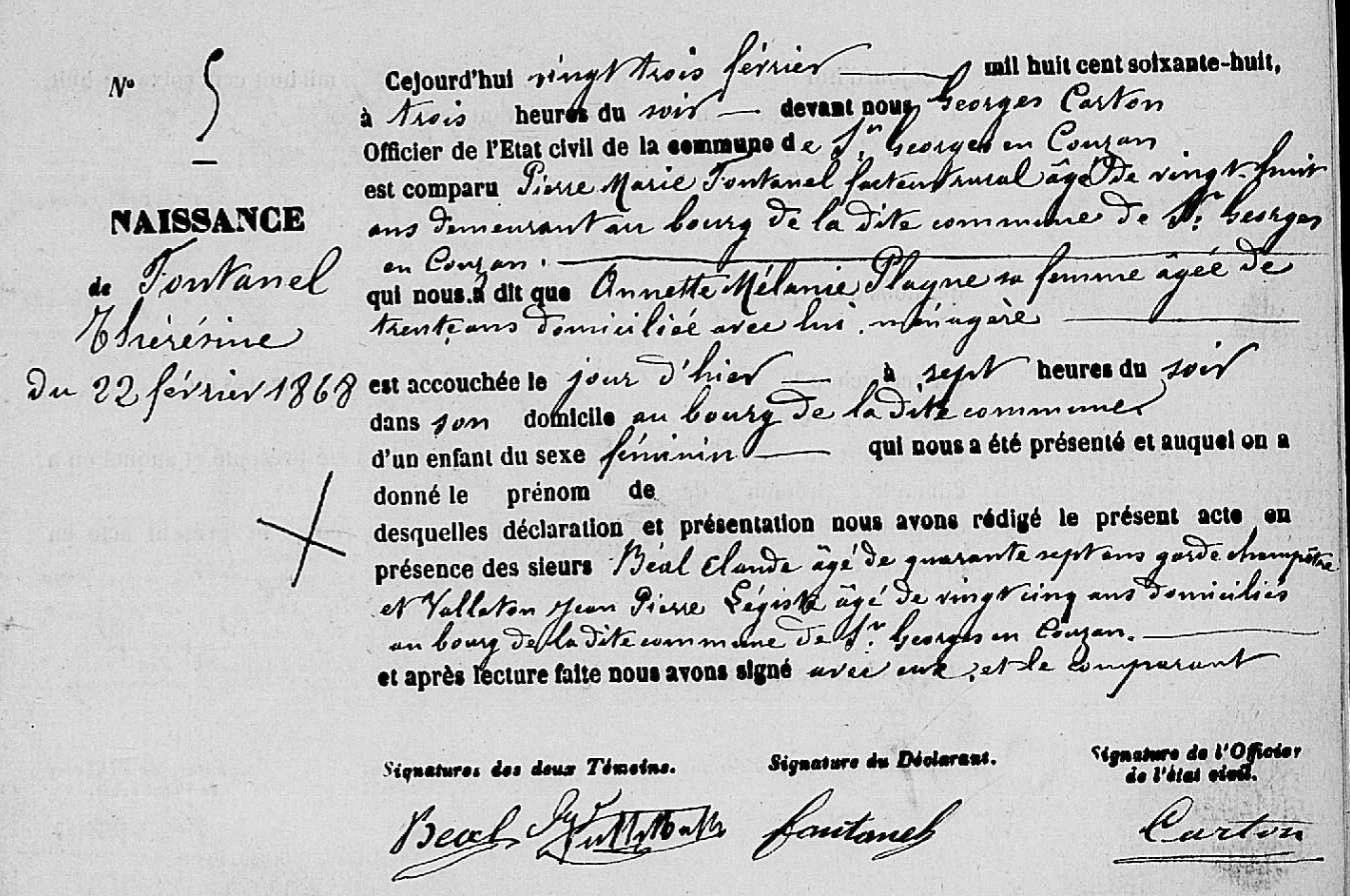 N° 5
NAISSANCE
de Fontanel
Thérésine
du 22 février 1868
Cejourd'hui vingt trois février mil huit cent soixante-huit,
à trois heures du soir devant nous Georges Carton
Officier de l'Etat civil de la commune de St. Georges en Couzan
est comparu Pierre Marie Fontanel facteur rural âgé de vingt-huit
ans demeurant au bourg de la dite commune de St. Georges
en Couzan.
qui nous a dit que Annette Mélanie Plagne sa femme âgée de
trente ans domiciliée avec lui, ménagère
est accouchée le jour d'hier à sept heures du soir
dans son domicile au bourg de la dite commune
d'un enfant du sexe féminin qui nous a été présenté et auquel on a
donné le prénom de
desquelles déclaration et présentation nous avons rédigé le présent acte en
présence des sieurs Béal Claude âgé de quarante sept ans garde champêtre
et Vallaton Jean Pierre Légiste âgé de vingt cinq ans domiciliés
au bourg de la dite commune de St. Georges en Couzan.
et après lecture faite nous avons signé avec eux, et le comparant
Signatures des deux Témoins. Signature du Déclarant. Signature de l'Officier
de l'état civil.
Béal fontanel Carton